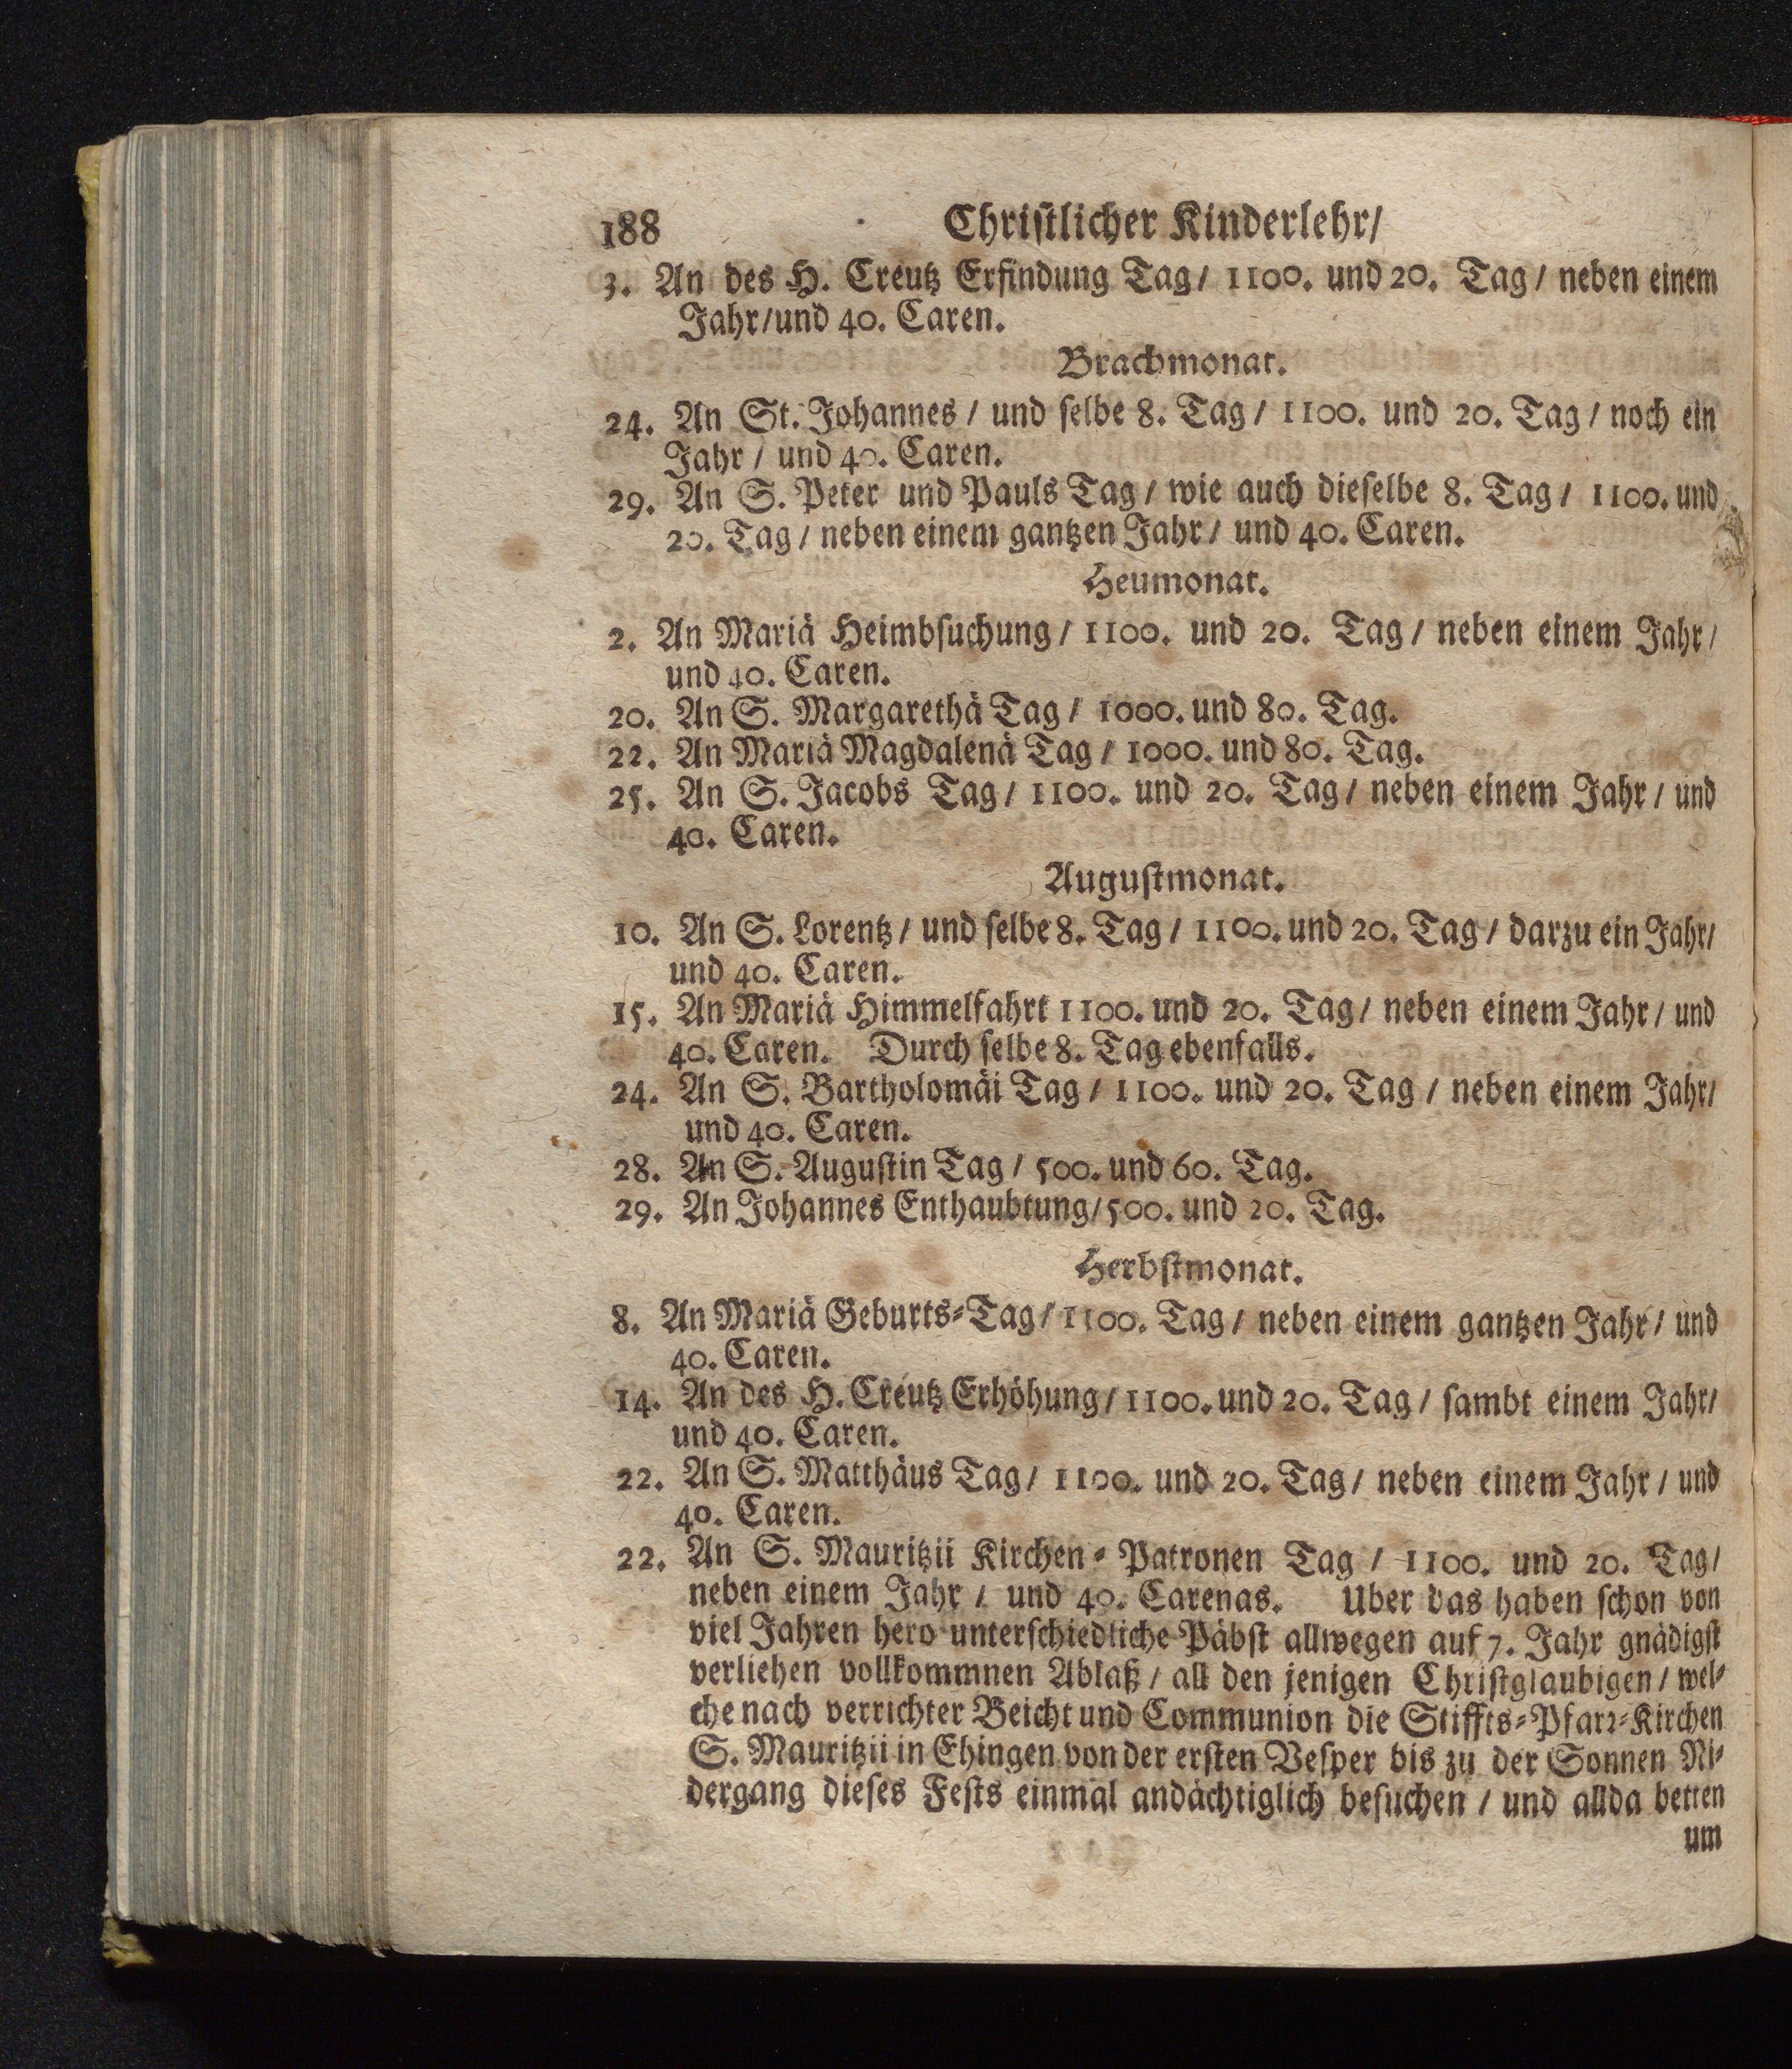 188 Christlicher Kinderlehr/
3. An des H. Creutz Erfindung Tag/ 1100. und 20. Tag/ neben einem
Jahr/und 40. Caren.
Brachmonat.
24. An St. Johannes / und selbe 8. Tag/ 1100. und 20. Tag/ noch ein
Jahr / und 40. Caren.
29. An S. Peter und Pauls Tag/ wie auch dieselbe 8. Tag/ 1100. und
20. Tag/ neben einem gantzen Jahr/ und 40. Caren.
Heumonat.
2. An Mariä Heimbsuchung/ 1100. und 20. Tag/ neben einem Jahr/
und 40. Caren.
20. An S. Margarethä Tag/ 1000. und 80. Tag.
22. An Mariä Magdalenä Tag/ 1000. und 80. Tag.
25. An S. Jacobs Tag/ 1100. und 20. Tag/ neben einem Jahr/ und
40. Caren.
Augustmonat.
10. An S. Lorentz/ und selbe 8. Tag/ 1100. und 20. Tag/ darzu ein Jahr/
und 40. Caren.
15. An Mariä Himmelfahrt 1100. und 20. Tag/ neben einem Jahr/ und
40. Caren. Durch selbe 8. Tag ebenfalls.
24. An S. Bartholomäi Tag/ 1100. und 20. Tag/ neben einem Jahr/
und 40. Caren.
28. An S. Augustin Tag/ 500. und 60. Tag.
29. An Johannes Enthaubtung/500. und 20. Tag.
Herbstmonat.
8. An Mariä Geburts-Tag/ 1100. Tag/ neben einem gantzen Jahr/ und
40. Caren.
14. An des H. Creutz Erhöhung/ 1100. und 20. Tag/ sambt einem Jahr/
und 40. Caren.
22. An S. Matthäus Tag/ 1100. und 20. Tag/ neben einem Jahr/ und
40. Caren.
22. An S. Mauritzii Kirchen-Patronen Tag / 1100. und 20. Tag/
neben einem Jahr / und 40. Carenas. Uber das haben schon von
viel Jahren hero unterschiedliche Päbst allwegen auf 7. Jahr gnädigst
verliehen vollkommnen Ablaß/ all den jenigen Christglaubigen/ wel-
che nach verrichter Beicht und Communion die Stiffts-Pfarr-Kirchen
S. Mauritzii in Ehingen von der ersten Vesper bis zu der Sonnen Ni-
dergang dieses Fests einmal andächtiglich besuchen / und allda betten
um